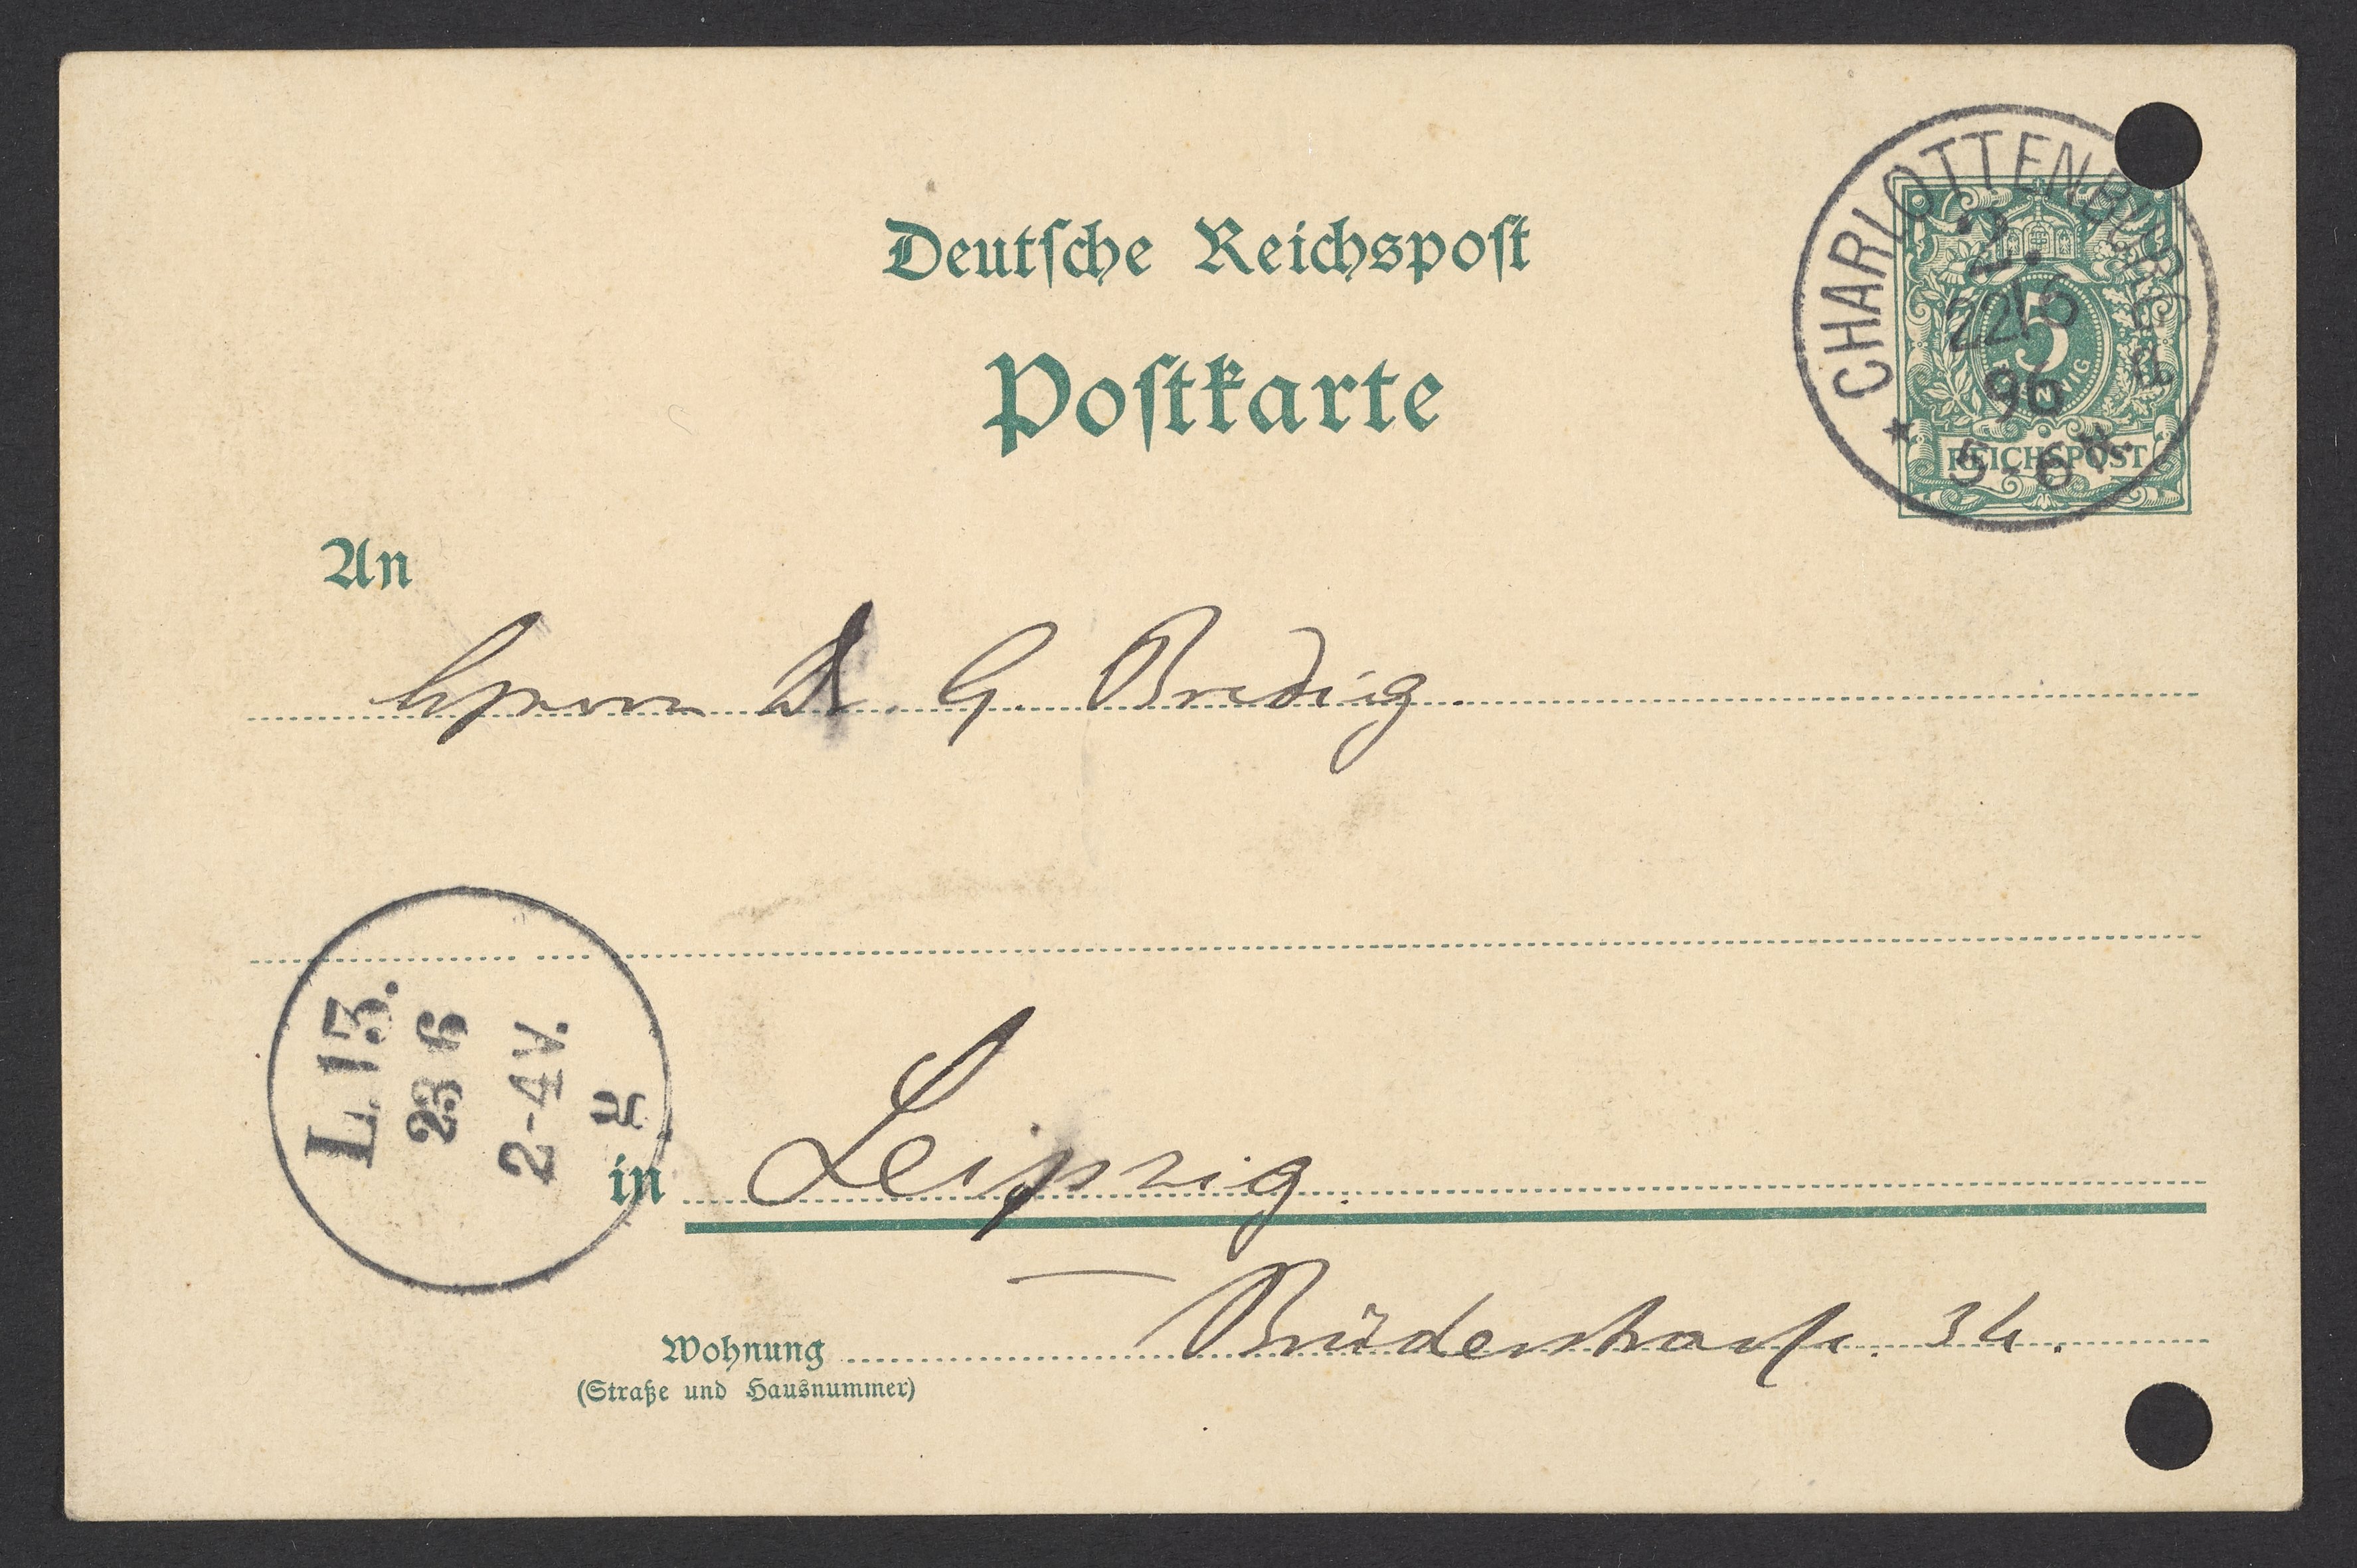 Deutsche Reichspost
Postkarte
CHARLOTTENBURG
2.
22/6
96
5-6 N.
a
5
REICHSPOST
An
Herrn Dr. G. Bredig.
L. 13.
23 6
2-4 V.
in Leipzig.
Wohnung Brüderstraße. 34.
(Straße und Hausnummer)